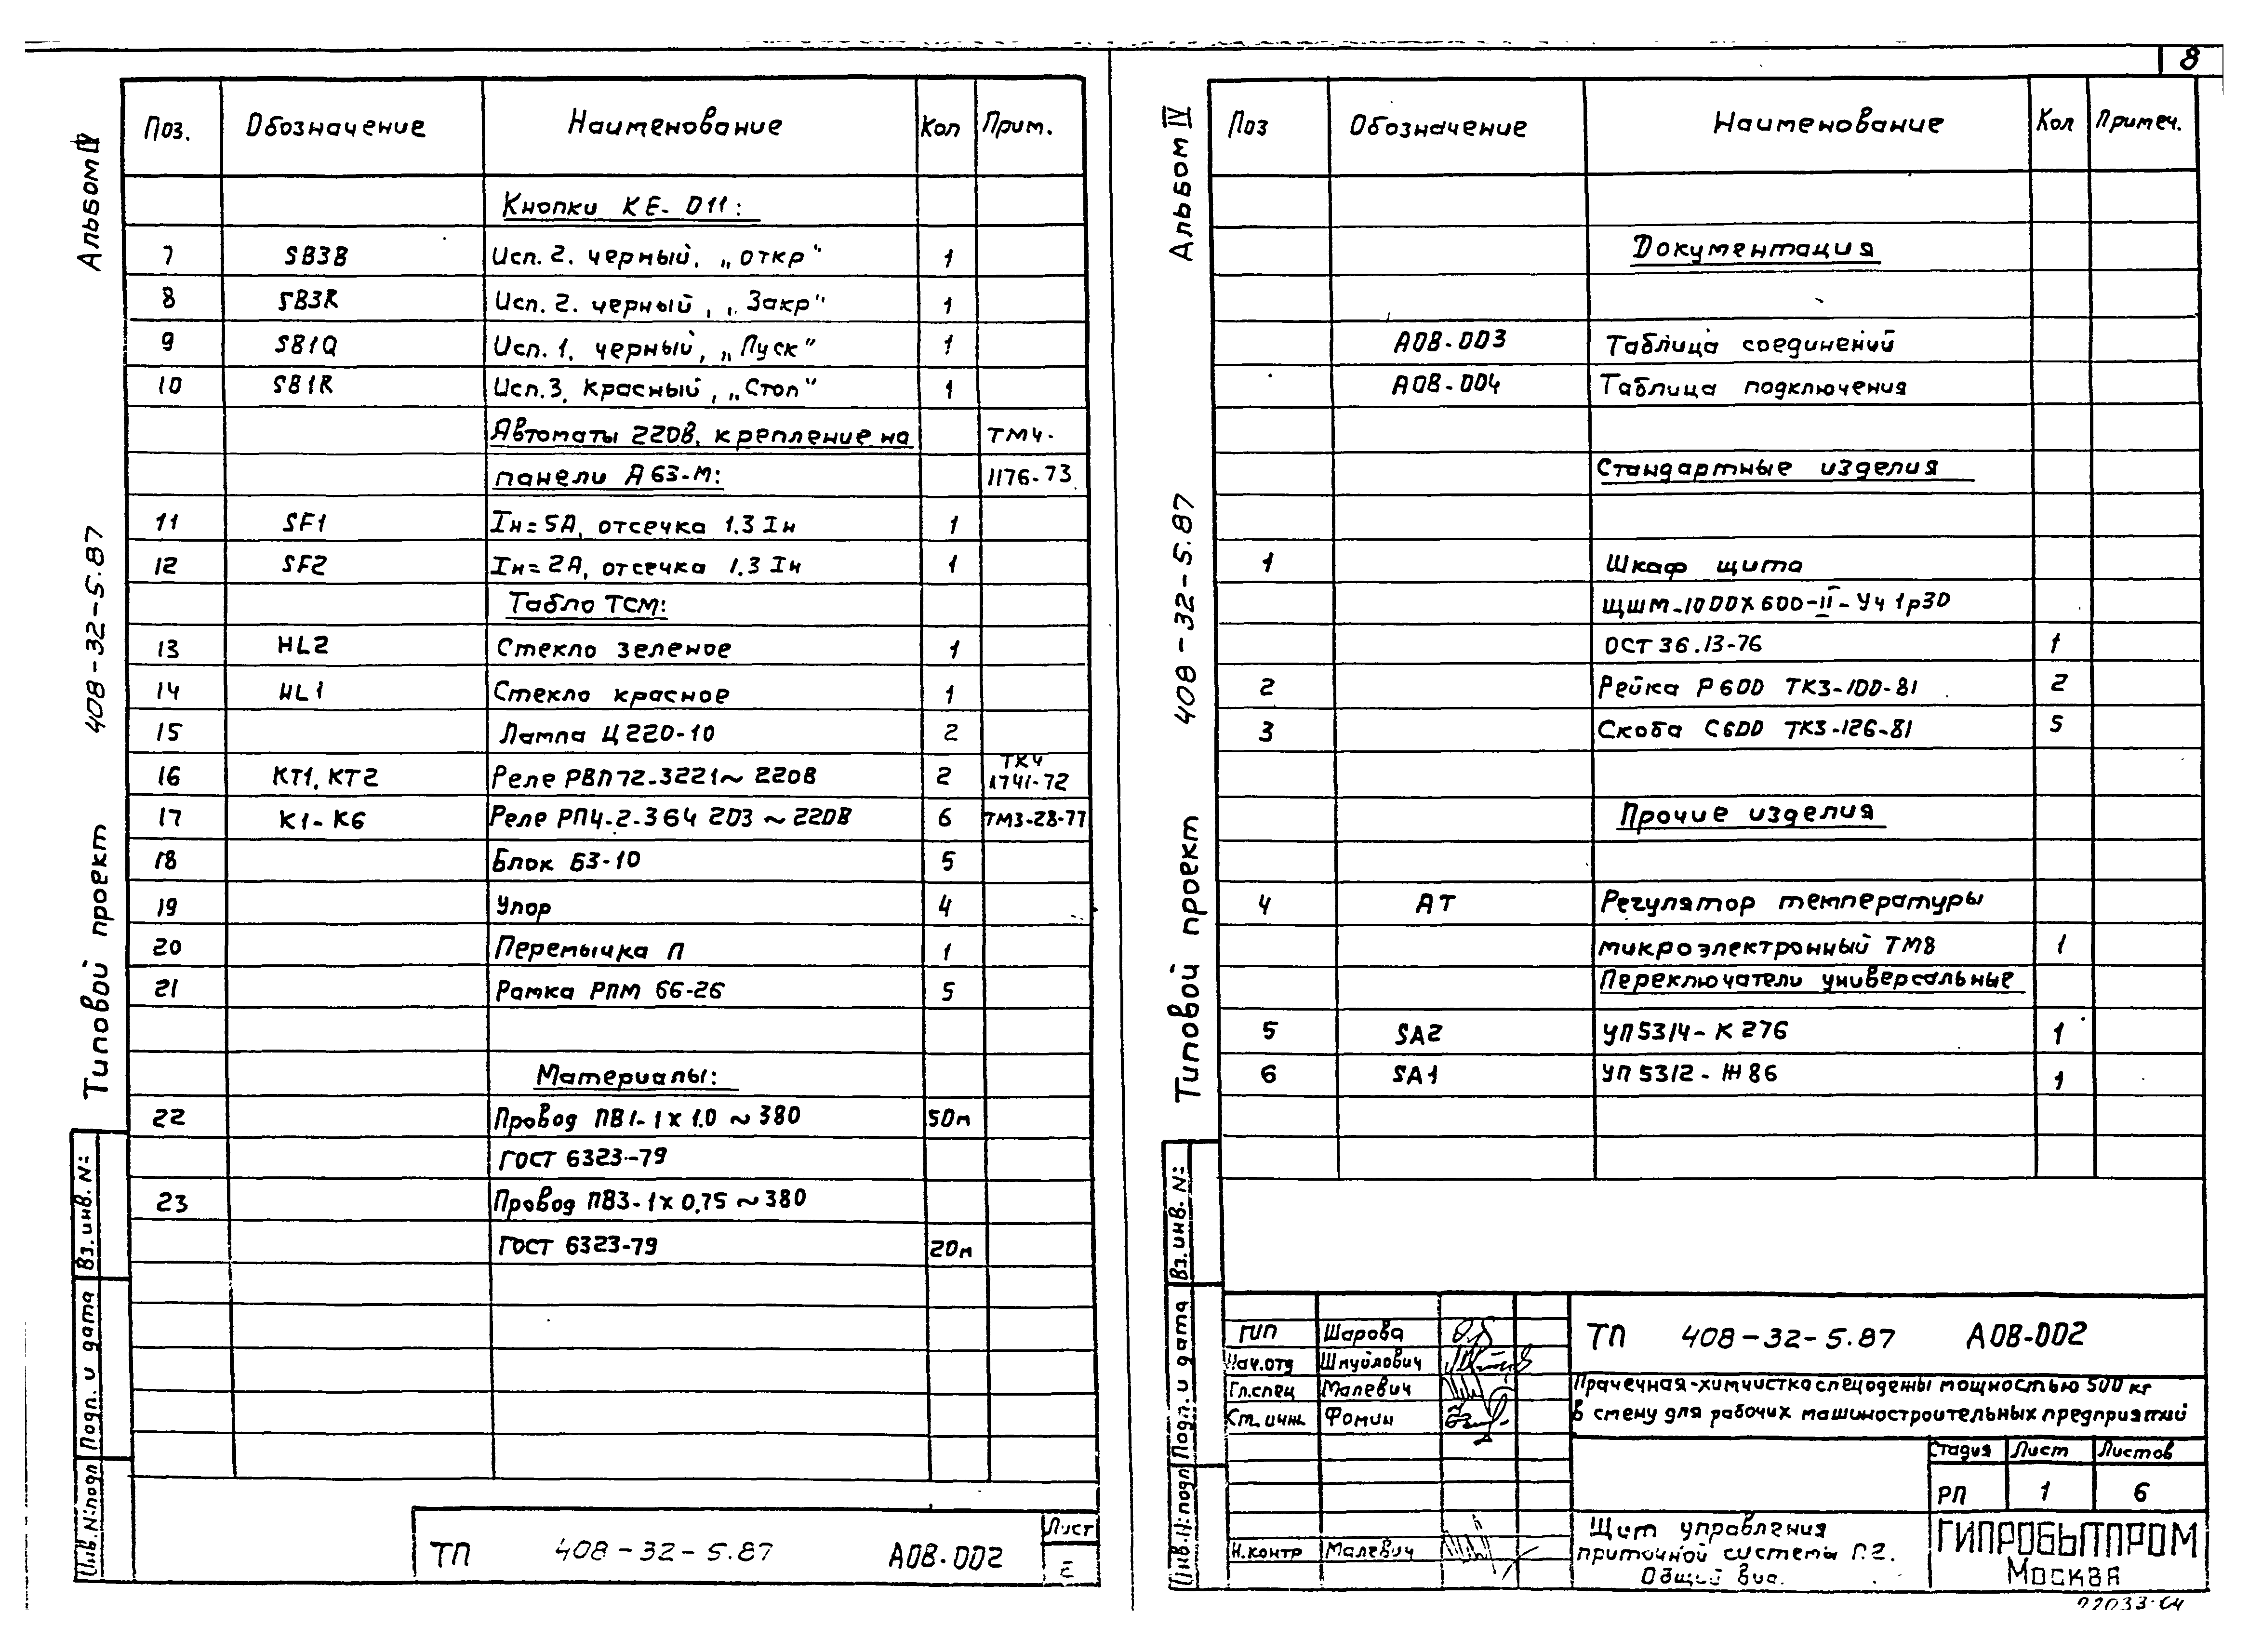 8
Альбом IV
Типовой проект 408-32-5.87
Поз. Обозначение Наименование Кол Прим.
Кнопки КЕ-011:
7 SB3B Исп. 2. черный, „откр“ 1
8 SB3R Исп. 2. черный, „Закр“ 1
9 SB1Q Исп. 1, черный, „Пуск“ 1
10 SB1R Исп. 3, красный, „Стоп“ 1
Автоматы 220В, крепление на ТМ4-
панели А63-М: 1176-73
11 SF1 Iн=5А, отсечка 1.3 Iн 1
12 SF2 Iн=2А, отсечка 1.3 Iн 1
Табло ТСМ:
13 HL2 Стекло зеленое 1
14 HL1 Стекло красное 1
15 Лампа Ц220-10 2
16 КТ1, КТ2 Реле РВП72-3221 ~ 220В 2 ТК4 1741-72
17 К1-К6 Реле РП4-2-364 203 ~ 220В 6 ТМ3-28-77
18 Блок БЗ-10 5
19 Упор 4
20 Перемычка П 1
21 Рамка РПМ 66-26 5
Материалы:
22 Провод ПВ1-1х1.0 ~380 50м
ГОСТ 6323-79
23 Провод ПВ3-1х0,75 ~380
ГОСТ 6323-79 20м
Вз. инв. №
Подп. и дата
Инв. № подл
ТП 408-32-5.87 А0В-002
Лист
2
Альбом IV
Типовой проект 408-32-5.87
Поз Обозначение Наименование Кол Примеч.
Документация
А0В-003 Таблица соединений
А0В-004 Таблица подключения
Стандартные изделия
1 Шкаф щита
ЩШМ-1000х600-II-У4 1р30
ОСТ 36.13-76 1
2 Рейка Р600 ТК3-100-81 2
3 Скоба С600 ТК3-126-81 5
Прочие изделия
4 АТ Регулятор температуры
микроэлектронный ТМ8 1
Переключатели универсальные
5 SA2 УП5314-К276 1
6 SA1 УП5312-Ж86 1
Вз. инв. №
Подп. и дата
Инв. № подл
ГИП Шарова
Нач.отд Шмуйлович
Гл.спец Малевич
Ст. инж. Фомин
Н.контр Малевич
ТП 408-32-5.87 А0В-002
Прачечная-химчистка спецодежды мощностью 500 кг
в смену для рабочих машиностроительных предприятий
Стадия Лист Листов
РП 1 6
Щит управления
приточной системы П.2.
Общий вид.
ГИПРОБЫТПРОМ
Москва
22033-04